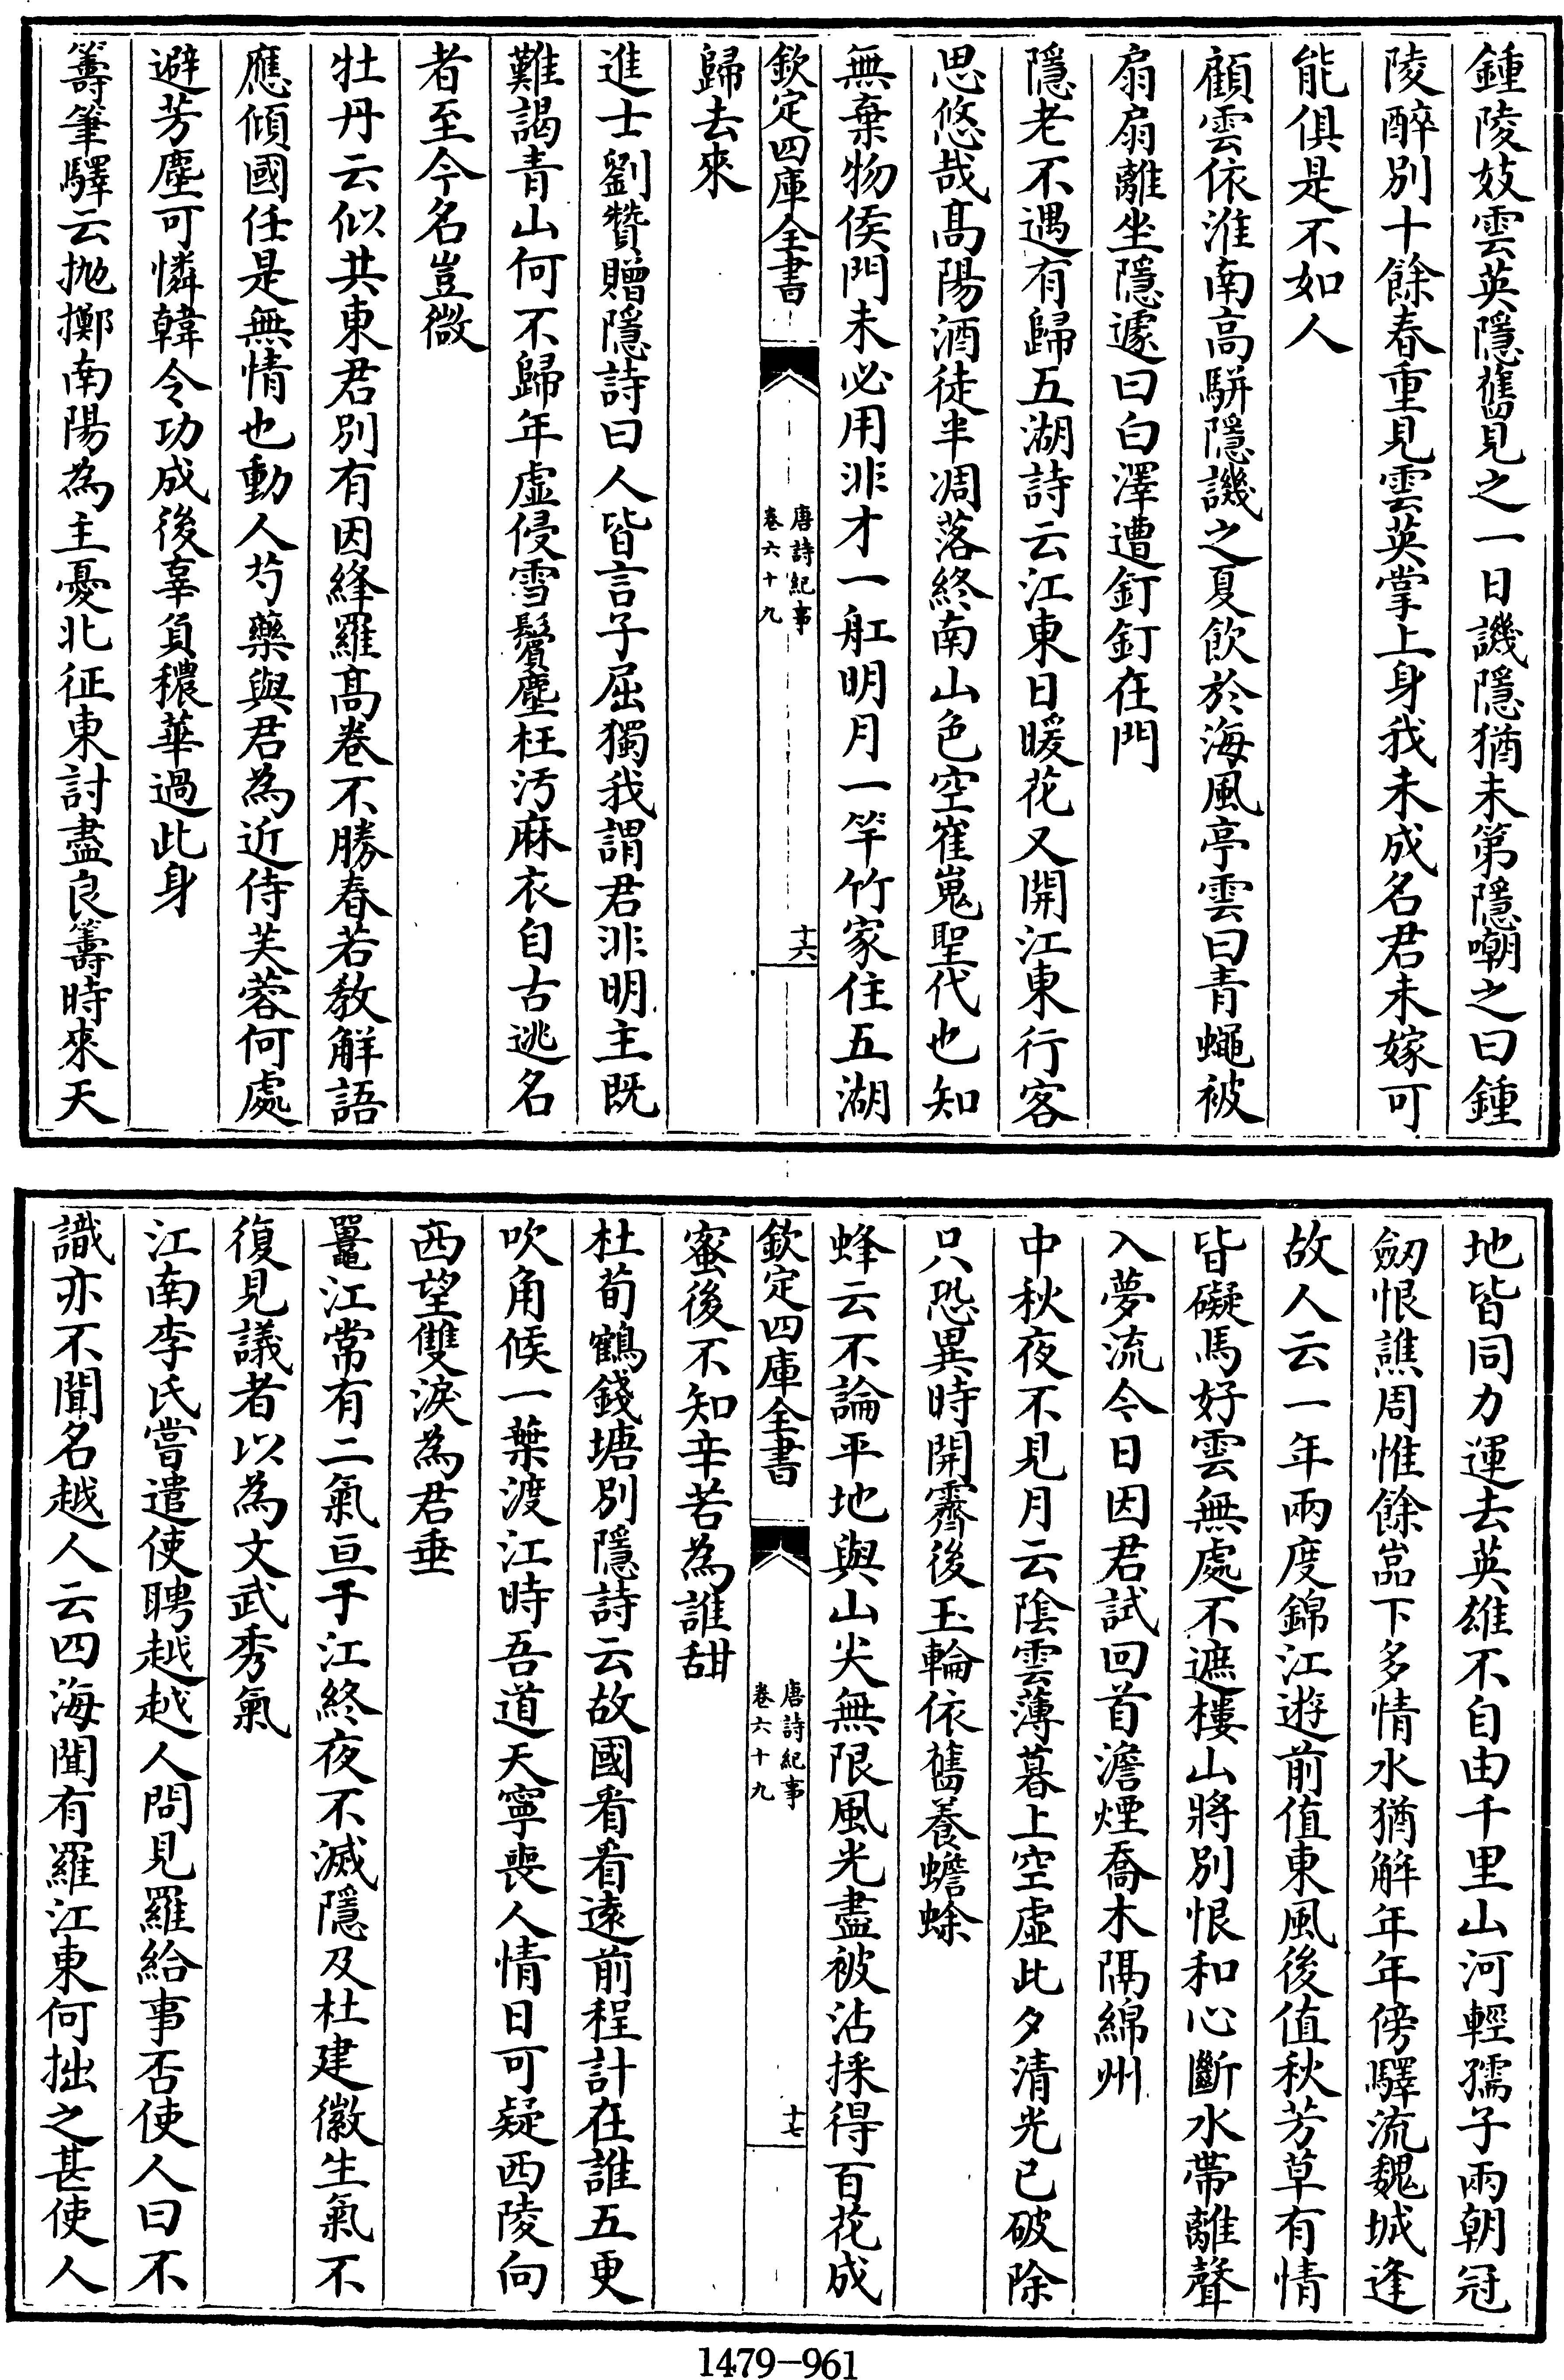 鍾陵妓雲英隱舊見之一日譏隱猶未第隱嘲之曰鍾
陵醉別十餘春重見雲英掌上身我未成名君未嫁可
能俱是不如人
顧雲依淮南高駢隱譏之夏飲於海風亭雲曰青蠅被
扇扇離坐隱遽曰白澤遭釘釘在門
隱老不遇有歸五湖詩云江東日暖花又開江東行客
思悠哉高陽酒徒半凋落終南山色空崔嵬聖代也知
無棄物侯門未必用非才一舡明月一竿竹家住五湖
歸去來
欽定四庫全書
唐詩紀事
卷六十九
十六
進士劉贊贈隱詩曰人皆言子屈獨我謂君非明主既
難謁青山何不歸年虛侵雪鬢塵枉汚麻衣自古逃名
者至今名豈微
牡丹云似共東君別有因絳羅高卷不勝春若教解語
應傾國任是無情也動人芍藥與君為近侍芙蓉何處
避芳塵可憐韓令功成後辜負穠華過此身
籌筆驛云抛擲南陽為主憂北征東討盡良籌時來天
地皆同力運去英雄不自由千里山河輕孺子兩朝冠
劒恨譙周惟餘嵓下多情水猶解年年傍驛流魏城逢
故人云一年兩度錦江遊前值東風後值秋芳草有情
皆礙馬好雲無處不遮樓山將別恨和心斷水帶離聲
入夢流今日因君試回首澹煙喬木隔綿州
中秋夜不見月云陰雲薄暮上空虛此夕清光已破除
只恐異時開霽後玉輪依舊養蟾蜍
蜂云不論平地與山尖無限風光盡被沾採得百花成
蜜後不知辛苦為誰甜
欽定四庫全書
唐詩紀事
卷六十九
十七
杜荀鶴錢塘別隱詩云故國看看遠前程計在誰五更
吹角候一葉渡江時吾道天寧喪人情日可疑西陵向
西望雙淚為君垂
鼉江常有二氣亘于江終夜不滅隱及杜建徽生氣不
復見議者以為文武秀氣
江南李氏嘗遣使聘越越人問見羅給事否使人曰不
識亦不聞名越人云四海聞有羅江東何拙之甚使人
1479-961